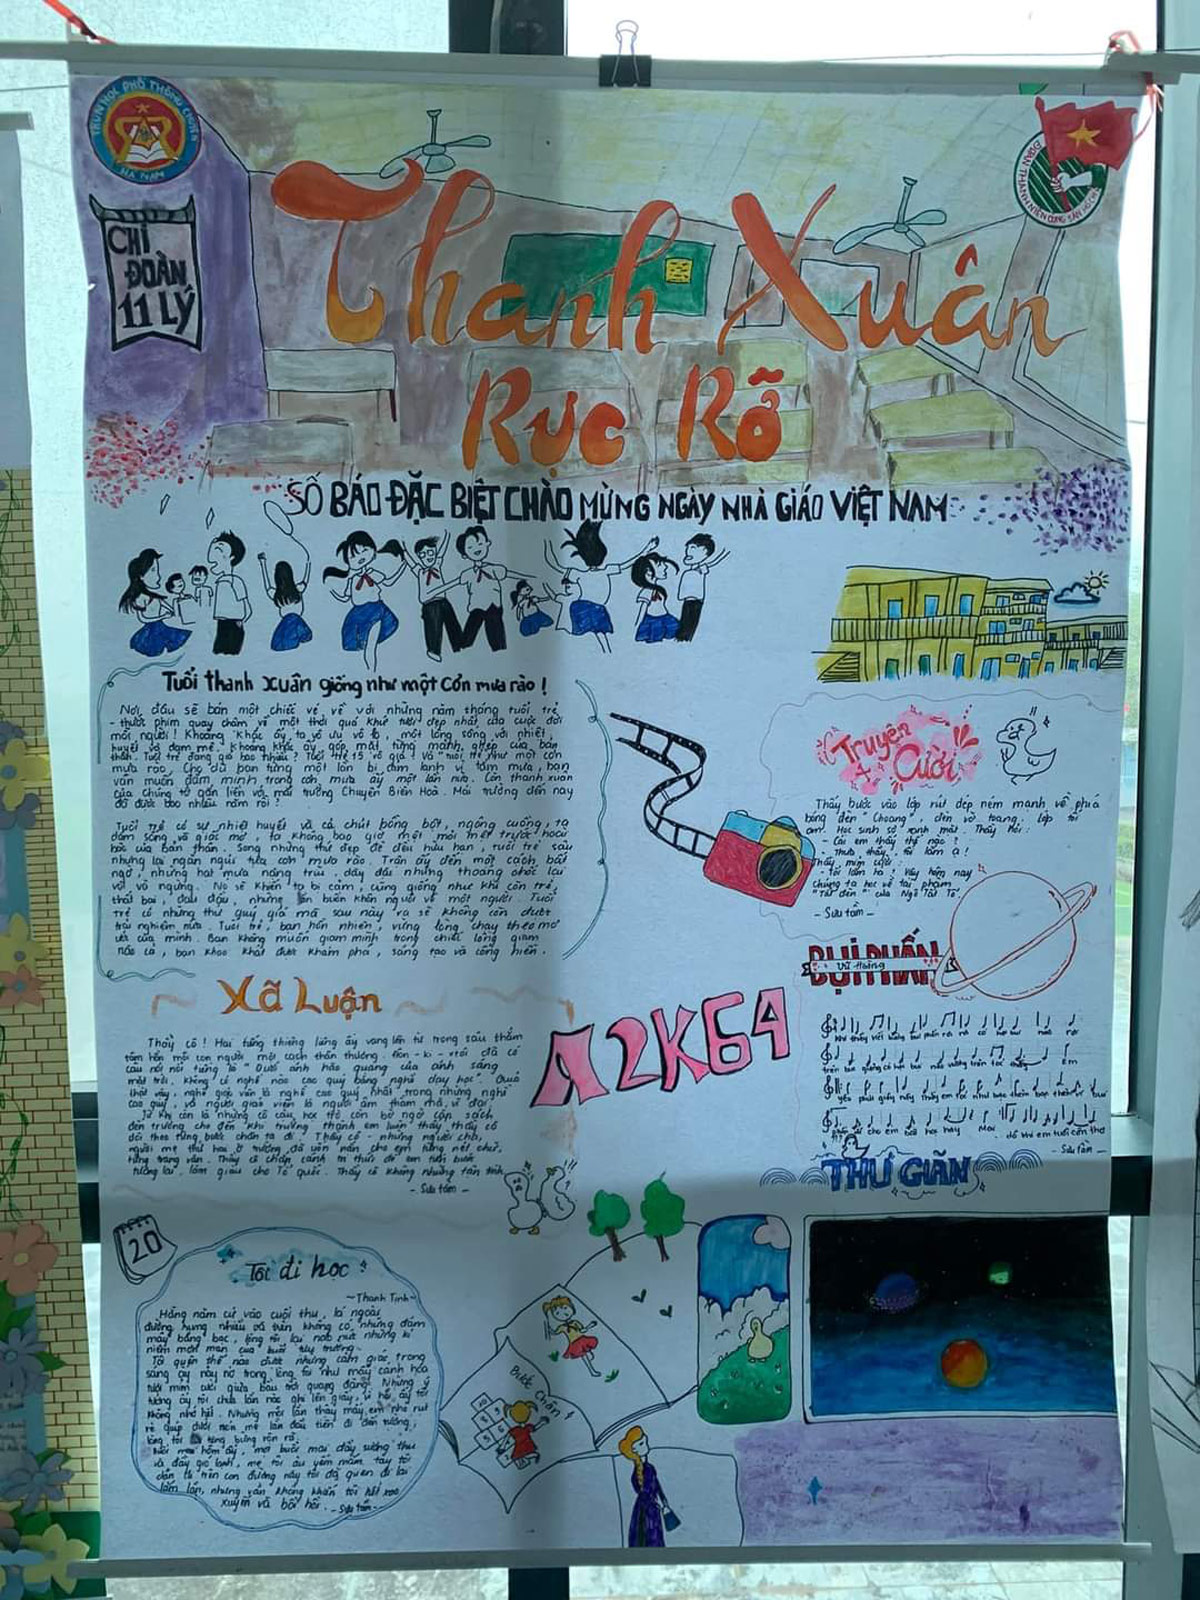 TRUNG HỌC PHỔ THÔNG CHUYÊN
HÀ NAM
ĐOÀN THANH NIÊN CỘNG SẢN HỒ CHÍ
CHI
ĐOÀN
11 LÝ
Thanh Xuân
Rực Rỡ
SỐ BÁO ĐẶC BIỆT CHÀO MỪNG NGÀY NHÀ GIÁO VIỆT NAM
Tuổi thanh xuân giống như một cơn mưa rào!
Nơi đâu sẽ bán một chiếc vé về với những năm tháng tuổi trẻ
- thước phim quay chậm về một thời quá khứ tươi đẹp nhất của cuộc đời
mỗi người! Khoảng khắc ấy ta vô ưu vô lo, một lòng sống với nhiệt
huyết và đam mê. Khoảng khắc ấy góp mặt từng mảnh ghép của bản
thân. Tuổi trẻ đáng giá bao nhiêu? Tuổi trẻ 15 vô giá! Và tuổi trẻ như một cơn
mưa rào. Cho dù bạn từng một lần bị cảm lạnh vì tắm mưa, bạn
vẫn muốn đắm mình trong cơn mưa ấy một lần nữa. Còn thanh xuân
của chúng tớ gắn liền với mái trường Chuyên Biên Hoà. Mái trường đến nay
đã được bao nhiêu năm rồi!
Tuổi trẻ có sự nhiệt huyết và cả chút bồng bột, ngông cuồng, ta
dám sống và ước mơ, ta không bao giờ mệt mỏi mệt trước hoài
bão của bản thân. Song những thứ đẹp đẽ đều hữu hạn, tuổi trẻ sâu
nhưng lại ngắn ngủi tựa cơn mưa rào. Trận ấy đến một cách bất
ngờ, những hạt mưa nặng trĩu, dấy đầy nhưng thoáng chốc lại
vội vỡ ngừng. Nó sẽ khiến ta bị cảm, cũng giống như khi còn trẻ
thất bại, đau đầu, nhưng lần khiến khôn người về một người. Tuổi
trẻ có những thứ quý giá mà sau này ta sẽ không còn được
trải nghiệm nữa. Tuổi trẻ, bạn hồn nhiên, vững lòng chạy theo mơ
ước của mình. Bạn không muốn giam mình trong chiếc lồng giam
nào cả, bạn khao khát được khám phá, sáng tạo và cống hiến.
Truyện
Cười
Thầy bước vào lớp rút dép ném mạnh về phía
bảng đen "Choang", đèn vỡ toang. Lớp tối
om. Học sinh sợ xanh mặt. Thầy hỏi:
- Các em thấy thế nào?
- Thưa thầy, tối lắm ạ!
Thầy mỉm cười:
- Tối lắm hả? Vậy hôm nay
chúng ta học về tác phẩm
"Tắt đèn" của Ngô Tất Tố.
- Sưu tầm -
BỤI PHẤN
Vũ Hoàng
Khi thầy viết bảng bụi phấn rơi rơi có hạt bụi nào rơi
trên bục giảng có hạt bụi nào vương trên tóc thầy em
yêu phút giây này thầy em tóc như bạc thêm bạc thêm vì bụi
phấn cho em bài học hay Mai
- Sưu tầm -
THƯ GIÃN
A2K64
Xã Luận
Thầy cô! Hai tiếng thiêng liêng ấy vang lên từ trong sâu thẳm
tâm hồn mỗi con người một cách thân thương.
câu nói nổi tiếng là "Dưới ánh hào quang của ánh sáng
mặt trời, không có nghề nào cao quý bằng nghề dạy học". Quả
thật vậy, nghề giáo viên là nghề cao quý nhất trong những nghề
cao quý, và người giáo viên là người âm thầm mà vĩ đại.
Từ khi còn là những cô cậu học trò còn bỡ ngỡ cắp sách
đến trường cho đến khi trưởng thành em luôn thấy thầy cô
dõi theo từng bước chân ta đi. Thầy cô - những người cha,
người mẹ thứ hai ở trường đã uốn nắn cho em từng nét chữ,
từng trang văn. Thầy cô chắp cánh tri thức để em tiếp bước
tương lai, làm giàu cho Tổ quốc. Thầy cô không những tận tình
- Sưu tầm -
20
Tôi đi học
~Thanh Tịnh~
Hằng năm cứ vào cuối thu, lá ngoài
đường rụng nhiều và trên không có những đám
mây bàng bạc, lòng tôi lại náo nức những kỉ
niệm mơn man của buổi tựu trường.
Tôi quên thế nào được những cảm giác trong
sáng ấy nảy nở trong lòng tôi như mấy cành hoa
tươi mỉm cười giữa bầu trời quang đãng. Những ý
tưởng ấy tôi chưa lần nào ghi lên giấy, vì hồi ấy tôi
không nhớ hết. Nhưng mỗi lần thấy mấy em nhỏ rụt
rè núp dưới nón mẹ lần đầu tiên đi đến trường,
lòng tôi lại tưng bừng rộn rã.
Buổi mai hôm ấy, một buổi mai đầy sương thu
và đầy gió lạnh, mẹ tôi âu yếm nắm tay tôi
dẫn đi trên con đường này tôi đã quen đi lại
lắm lần, nhưng vẫn không khỏi tôi hết xao
xuyến và bồi hồi. - Sưu tầm -
Bước chân